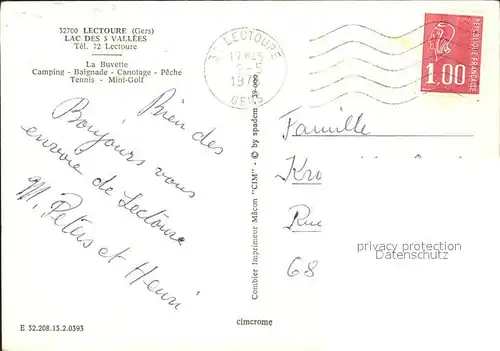 32700 LECTOURE (Gers)
LAC DES 3 VALLÉES
Tél. 72 Lectoure
La Buvette
Camping - Baignade - Canotage - Pêche
Tennis - Mini-Golf
LECTOURE
GERS
1.00
REPUBLIQUE FRANÇAISE
Bien des
Bonjours vous
envoie de Lectoure
M. Peters et Henri
Combier Imprimeur Mâcon "CIM" - © by spadem
Famille
Kro
Rue
68
privacy protection
Datenschutz
E 32.208.13.2.0393
cimcrome